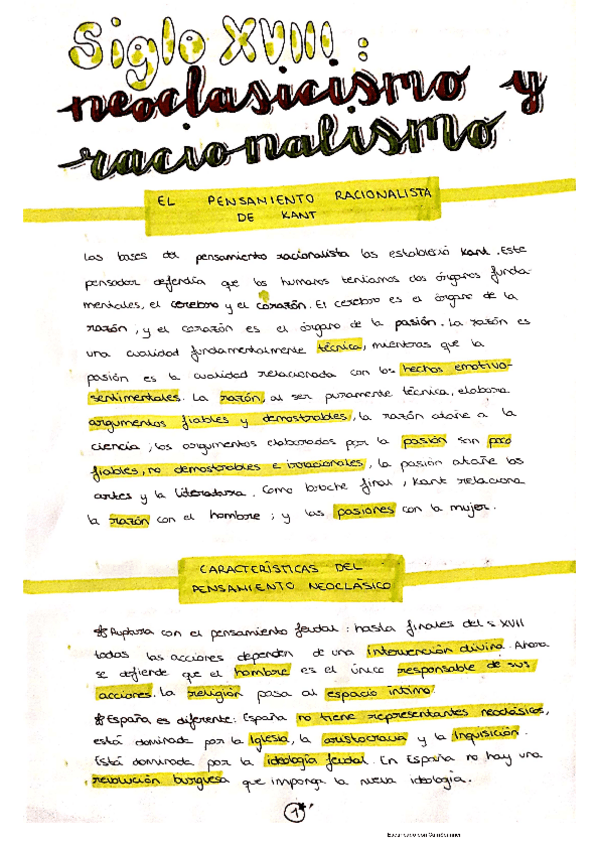 Siglo XVIII:
neoclasicismo y
racionalismo
EL PENSAMIENTO RACIONALISTA
DE KANT
Las bases del pensamiento racionalista las estableció Kant. Este
pensador defendía que los humanos teníamos dos órganos funda-
mentales, el cerebro y el corazón. El cerebro es el órgano de la
razón, y el corazón es el órgano de la pasión. La razón es
una cualidad fundamentalmente técnica, mientras que la
pasión es la cualidad relacionada con los hechos emotivo-
sentimentales. La razón, al ser puramente técnica, elabora
argumentos fiables y demostrables, la razón atañe a la
ciencia; los argumentos elaborados por la pasión son poco
fiables, no demostrables e irracionales, la pasión atañe las
artes y la literatura. Como broche final, Kant relaciona
la razón con el hombre; y las pasiones con la mujer.
CARACTERÍSTICAS DEL
PENSAMIENTO NEOCLÁSICO
*Ruptura con el pensamiento feudal: hasta finales del s XVII
todas las acciones dependen de una intervención divina. Ahora
se defiende que el hombre es el único responsable de sus
acciones. La religión pasa al espacio íntimo.
*España es diferente: España no tiene representantes neoclásicos,
está dominada por la Iglesia, la aristocracia y la Inquisición.
Está dominada por la ideología feudal. En España no hay una
revolución burguesa que imponga la nueva ideología.
1
Escaneado con CamScanner